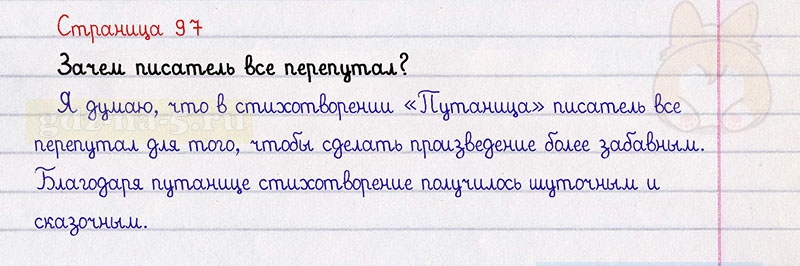 Страница 97
Зачем писатель все перепутал?
Я думаю, что в стихотворении «Путаница» писатель все
перепутал для того, чтобы сделать произведение более забавным.
Благодаря путанице стихотворение получилось шуточным и
сказочным.